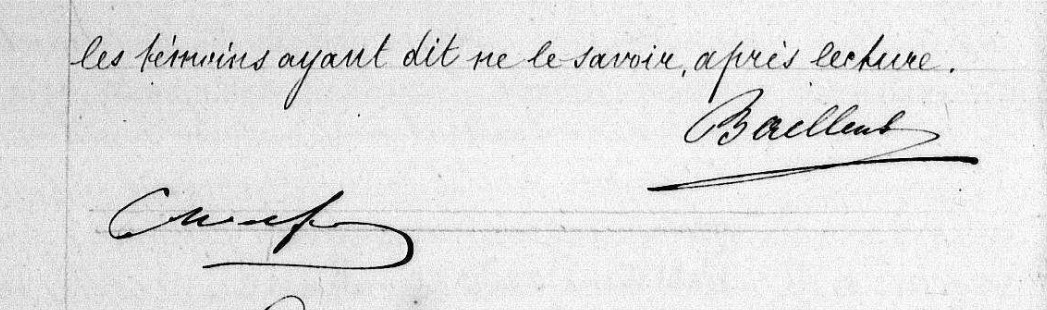 les témoins ayant dit ne le savoir, après lecture.